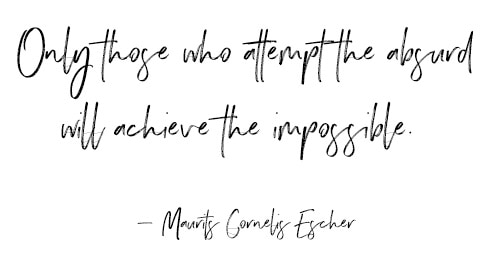 Only those who attempt the absurd
will achieve the impossible.
— Maurits Cornelis Escher